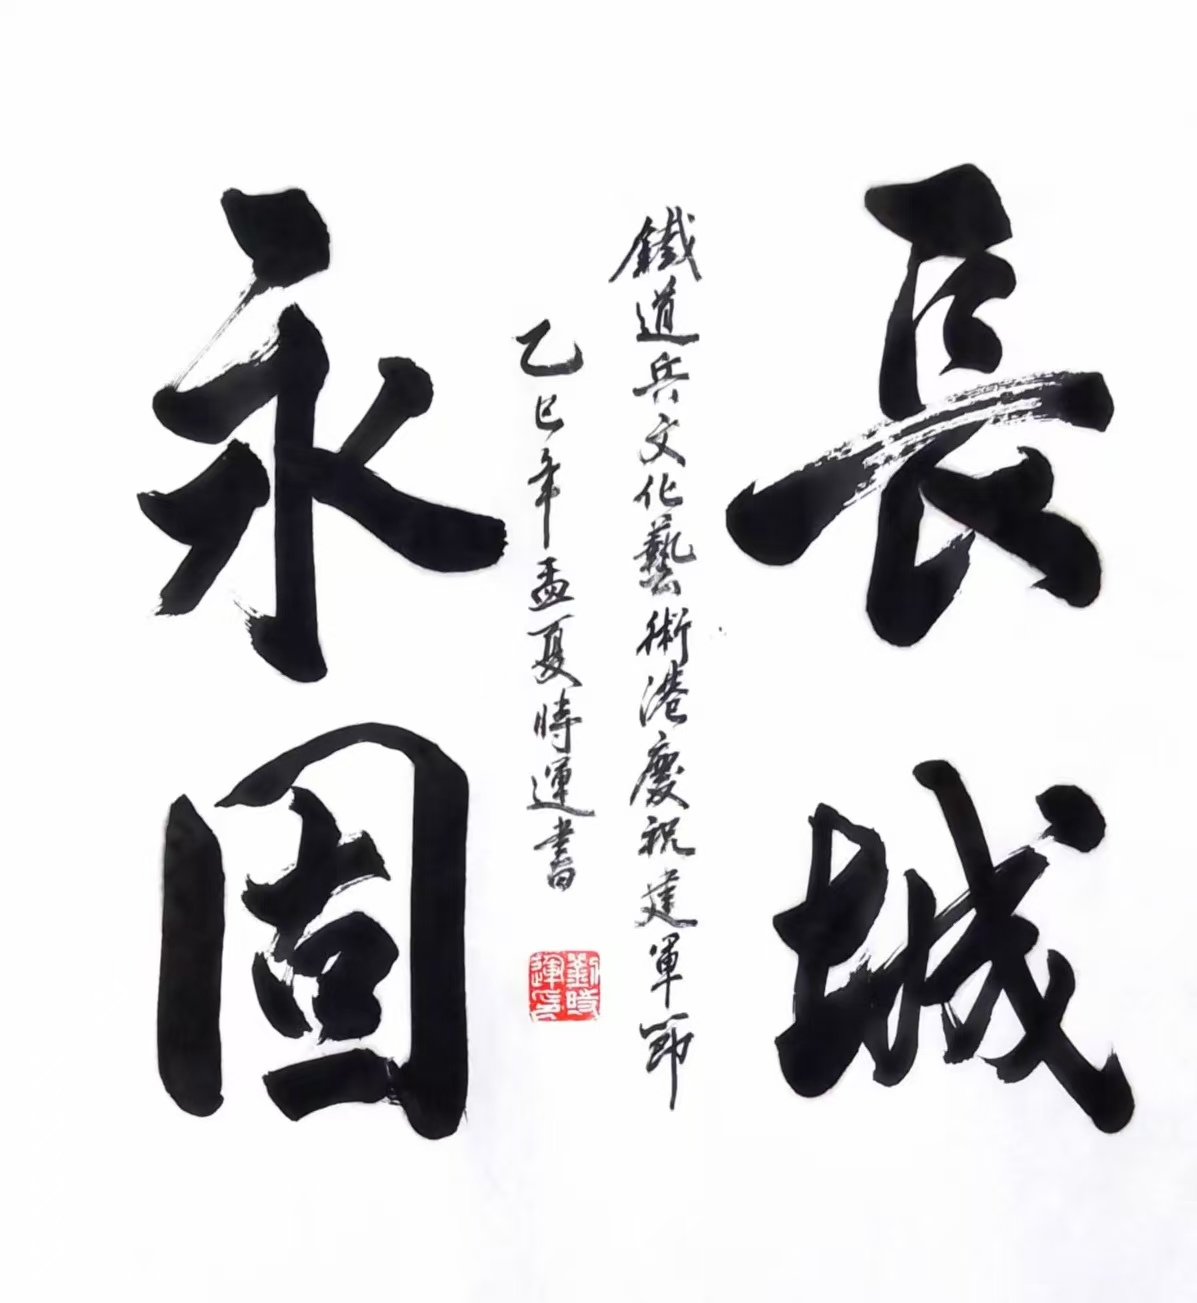 長城
鐵道兵文化藝術港慶祝建軍節
乙巳年孟夏時運書
永固
劉時
運印